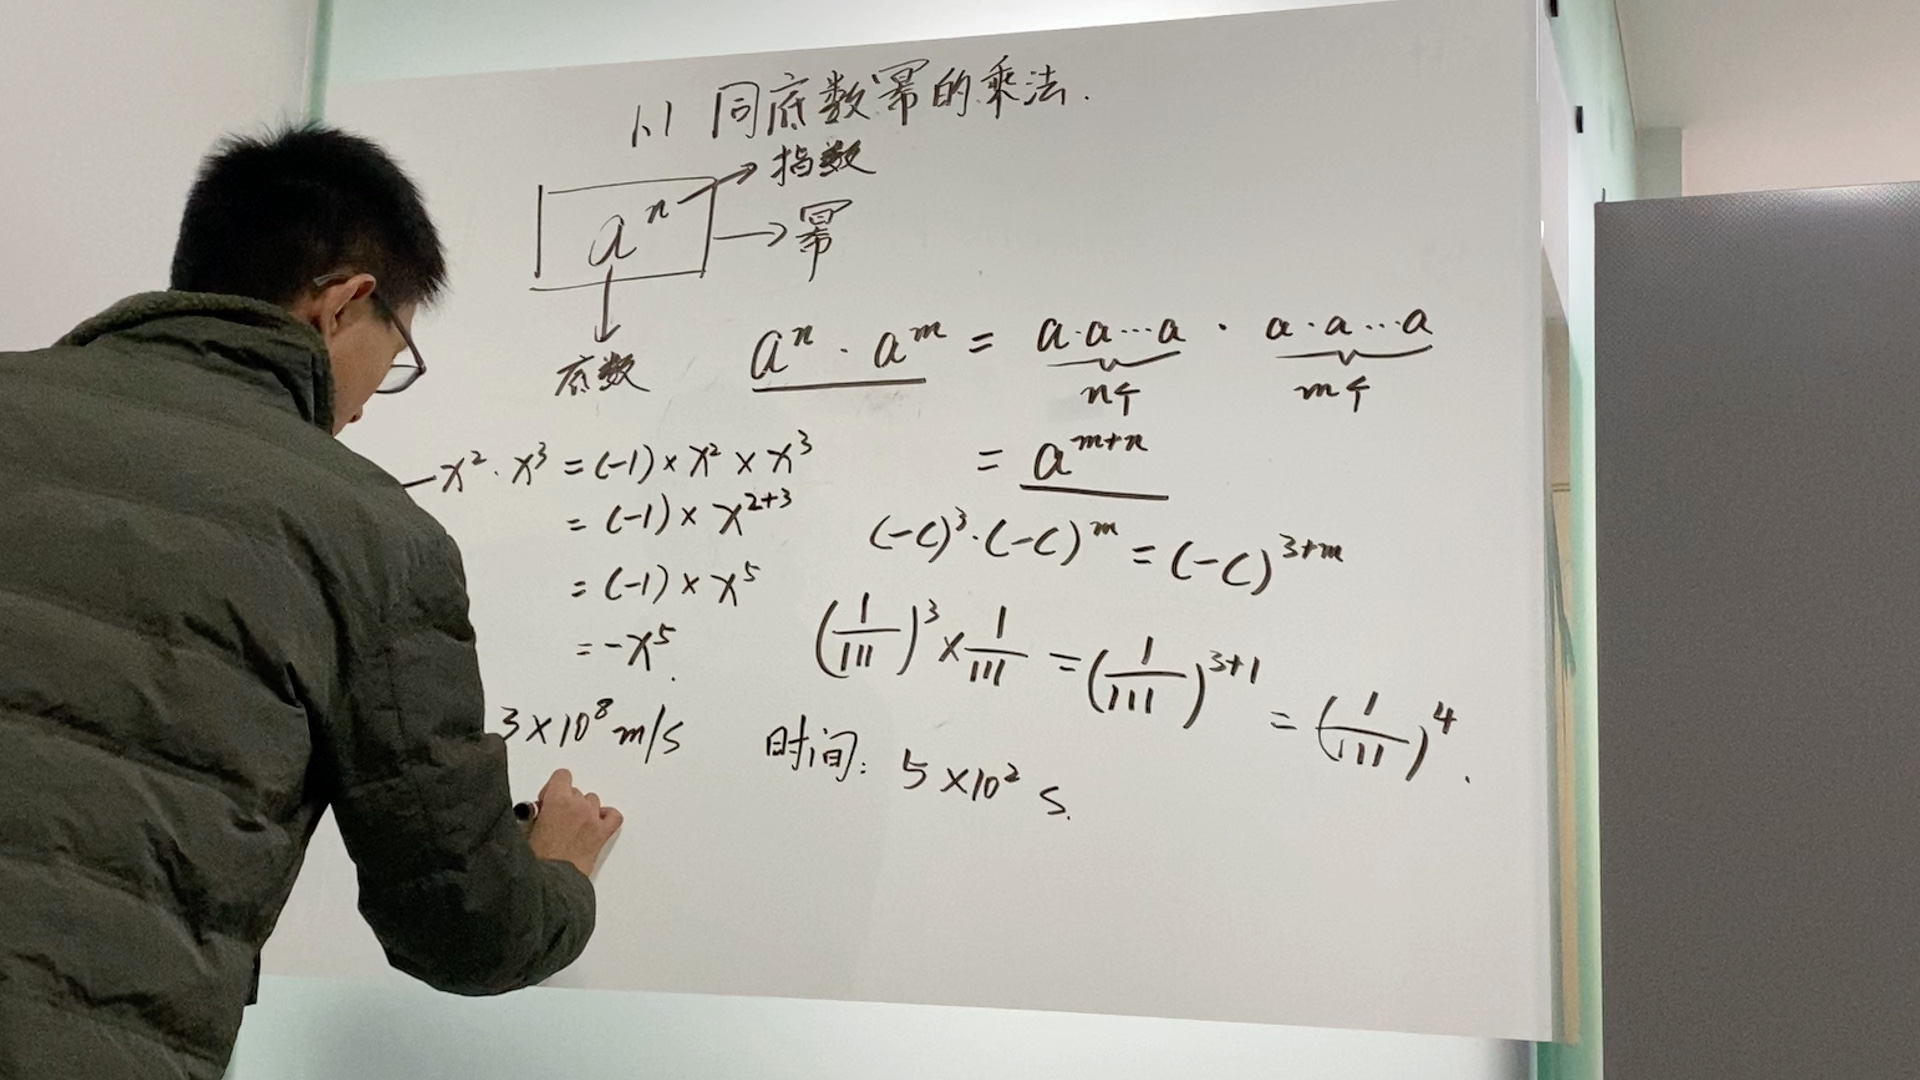 1.1 同底数幂的乘法.
指数
aⁿ
幂
底数
aⁿ · aᵐ = a·a…a · a·a…a
n个 m个
= aᵐ⁺ⁿ
-x² · x³ = (-1) × x² × x³
= (-1) × x²⁺³
= (-1) × x⁵
= -x⁵.
(-c)³·(-c)ᵐ = (-c)³⁺ᵐ
(1/111)³ × 1/111 = (1/111)³⁺¹ = (1/111)⁴.
3×10⁸ m/s 时间: 5×10² s.